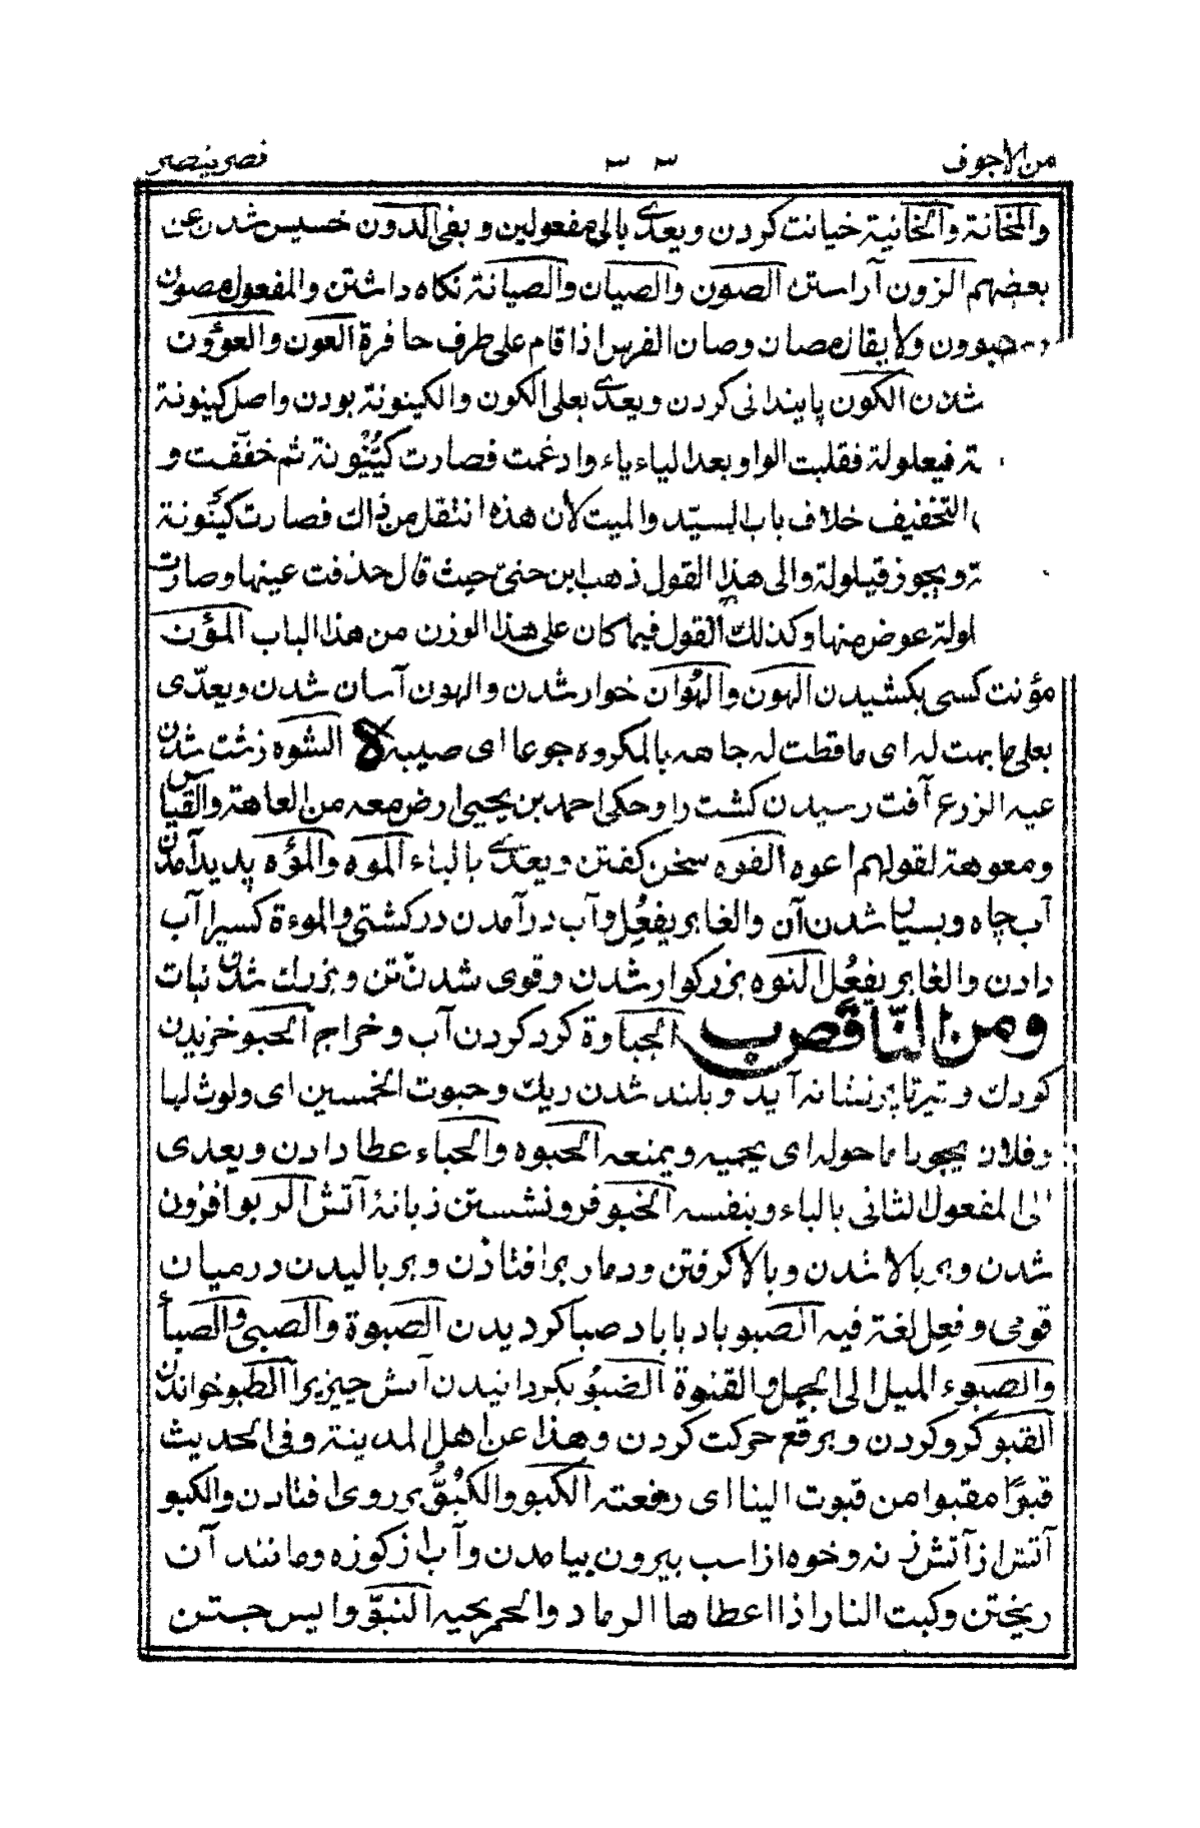 من الاجوف ٣٣ نصر ينصر
والمخانة والخائنية خيانت كردن ويعدى بالى مفعولين و بفى الدون خسيس شدن عن
بعضهم الزون آراستن الصون والصيان والصيانة نكاه داشتن والمفعول مصون
ولا يقال مصان وصان الفرس اذا قام على طرف حافره العون والعوؤن
شدن الكون پايندانى كردن ويعدى بعلى الكون والكينونة بودن واصل كينونة
فيعلولة فقلبت الواو بعد الياء ياء وادغمت فصارت كيّنونة ثم خففت و
التخفيف خلاف باب السيّد والميت لأن هذه انتقل من ذاك فصارت كيّنونة
ة ويجوز قيلولة والى هذا القول ذهب ابن جنى حيث قال حذفت عينها وصارت
لولة عوض منها وكذلك القول فيما كان على هذا الوزن من هذا الباب المؤن
مؤنت كسى بكشيدن الهون والهُوان خوار شدن والهون آسان شدن ويعدّى
بعلى ما بهت له اى ما فطنت له جاهه بالمكروه جوها اى ه الشوه زشت شدن
عيه الزرع آفت رسيدن كشت را وحكى احمد بن يحيى ارض معه من العاهة والقياس
ومعوهة لقولهم اعوه الفوه سخن كفتن ويعدى بالباء الموه والمؤه پديد آمدن
آب چاه وبسيار شدن آن والغابر يفعُل وآب در آمدن در كشتى والموءة كسيرا آب
دادن والغابر يفعُل النوه بزركوار شدن وقوى شدن تن وبزرك شدن نبات
ومن الناقص ب الجباوة كرد كردن آب وخراج الحبو خزيدن
كودك وتير تا بر نشانه آيد وبلند شدن ريك وحبوت الخمسين اى دنوت لها
وفلان يحبو ما حوله اى يحميه ويمنعه الحبوه والحباء عطا دادن ويعدى
الى المفعول الثانى بالباء وبنفسه الخبو فرو نشستن زبانۀ آتش الربو افزون
شدن وبر بالا شدن وبالا كرفتن ودمار برافتادن وبر باليدن در ميان
قومى وفعِل لغة فيه الصبو باد با باد صبا كرديدن الصبوة والصبى والصبأ
والصبوء الميل الى الجهل والفتوة الضبو بكردانيدن آتش چيزيرا الطبو خواندن
القبو كرو كردن وبرقع حركت كردن وهذا عن اهل المدينة وفى الحديث
قبوًا مقبوا من قبوت البنا اى رفعته الكبو والكُبُوُّ بر روى افتادن والكبو
آتش از آتش زنه وخوه از اسب بيرون بيامدن وآب از كوزه ومانند آن
ريختن وكبت النار اذا اعطاها الرماد والجمر يحيه النبوّ واپس جستن